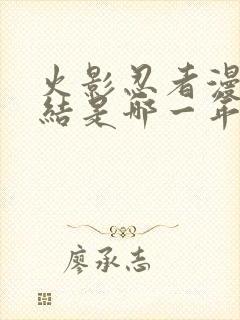 火影忍者漫
結是哪一年
廖承志